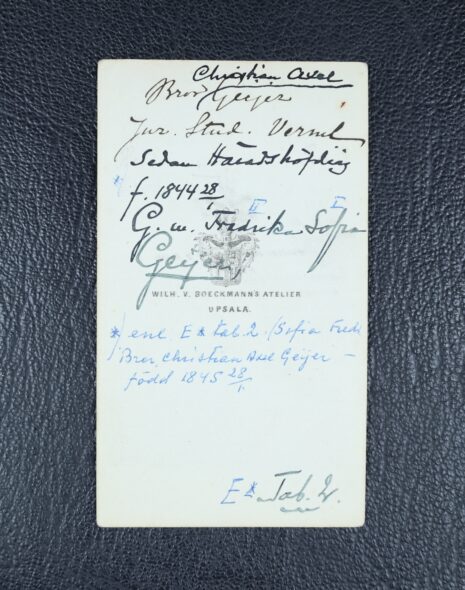 Christian Axel
Bror Geijer
Jur. Stud. Verml
Sedan Häradshöfding
* f. 1844 28/1
II I
G. m. Fredrika Sofia
Geijer,
WILH. V. BOECKMANN'S ATELIER
UPSALA.
*/ enl. E* tab. 2. /Sofia Fred
Bror Christian Axel Geijer –
född 1845 28/1.
E*. Tab. 2.